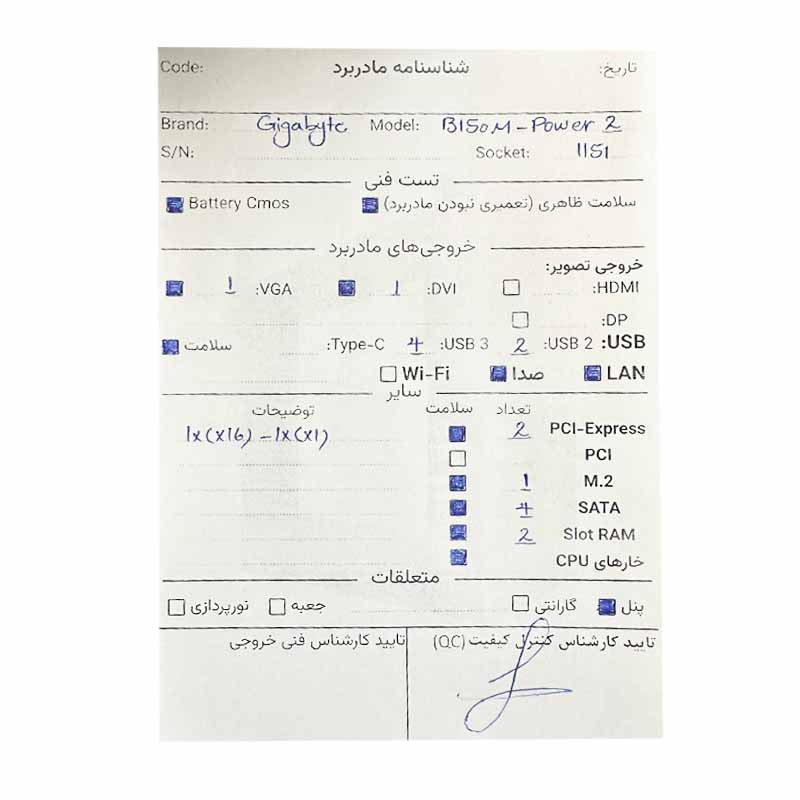 Code: شناسنامه مادربرد تاریخ:
Brand: Gigabyte Model: B150M-Power 2
S/N: Socket: 1151
تست فنی
سلامت ظاهری (تعمیری نبودن مادربرد) Battery Cmos
خروجی‌های مادربرد
خروجی تصویر:
HDMI: DVI: 1 VGA: 1
DP:
USB: USB 2: 2 USB 3: 4 Type-C: سلامت
LAN صدا Wi-Fi
سایر
تعداد سلامت توضیحات
PCI-Express 2 1x(x16) - 1x(x1)
PCI
M.2 1
SATA 4
Slot RAM 2
خارهای CPU
متعلقات
پنل گارانتی جعبه نورپردازی
تایید کارشناس کنترل کیفیت (QC) تایید کارشناس فنی خروجی